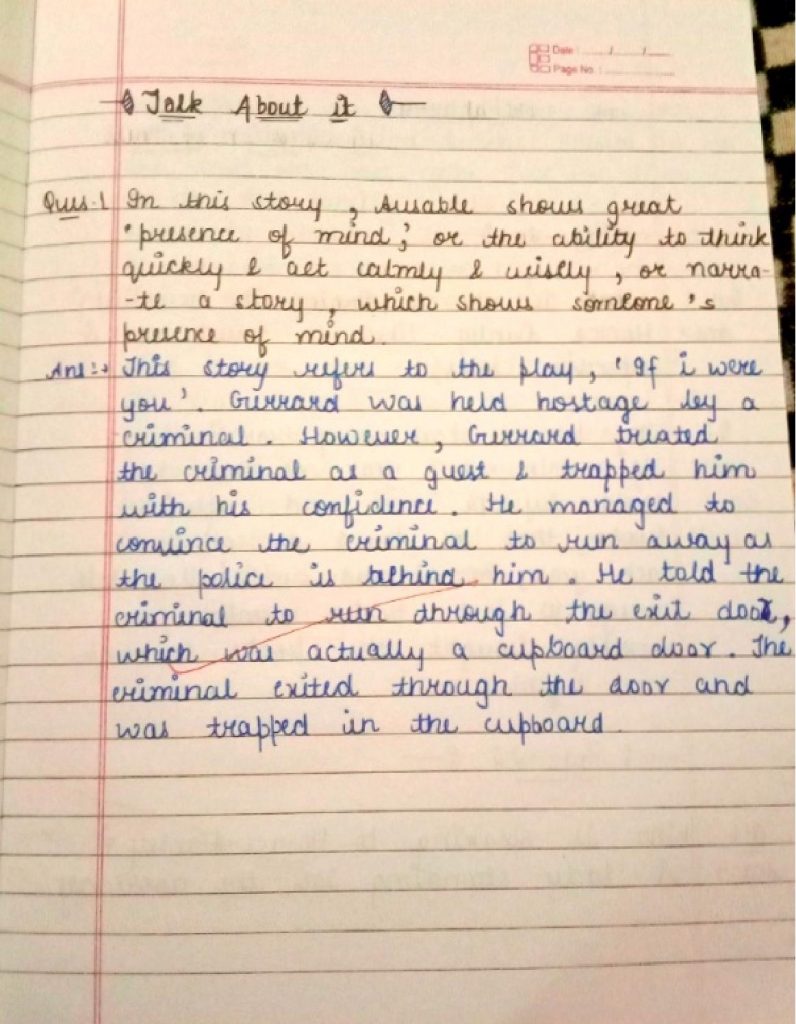 Date : / /
Page No. :
Talk About it
Ques.1 In this story, Ausable shows great
"presence of mind," or the ability to think
quickly & act calmly & wisely, or narra-
-te a story, which shows someone's
presence of mind.
Ans:→ This story refers to the play, 'If i were
you'. Gerrard was held hostage by a
criminal. However, Gerrard treated
the criminal as a guest & trapped him
with his confidence. He managed to
convince the criminal to run away as
the police is behind him. He told the
criminal to run through the exit door,
which was actually a cupboard door. The
criminal exited through the door and
was trapped in the cupboard.